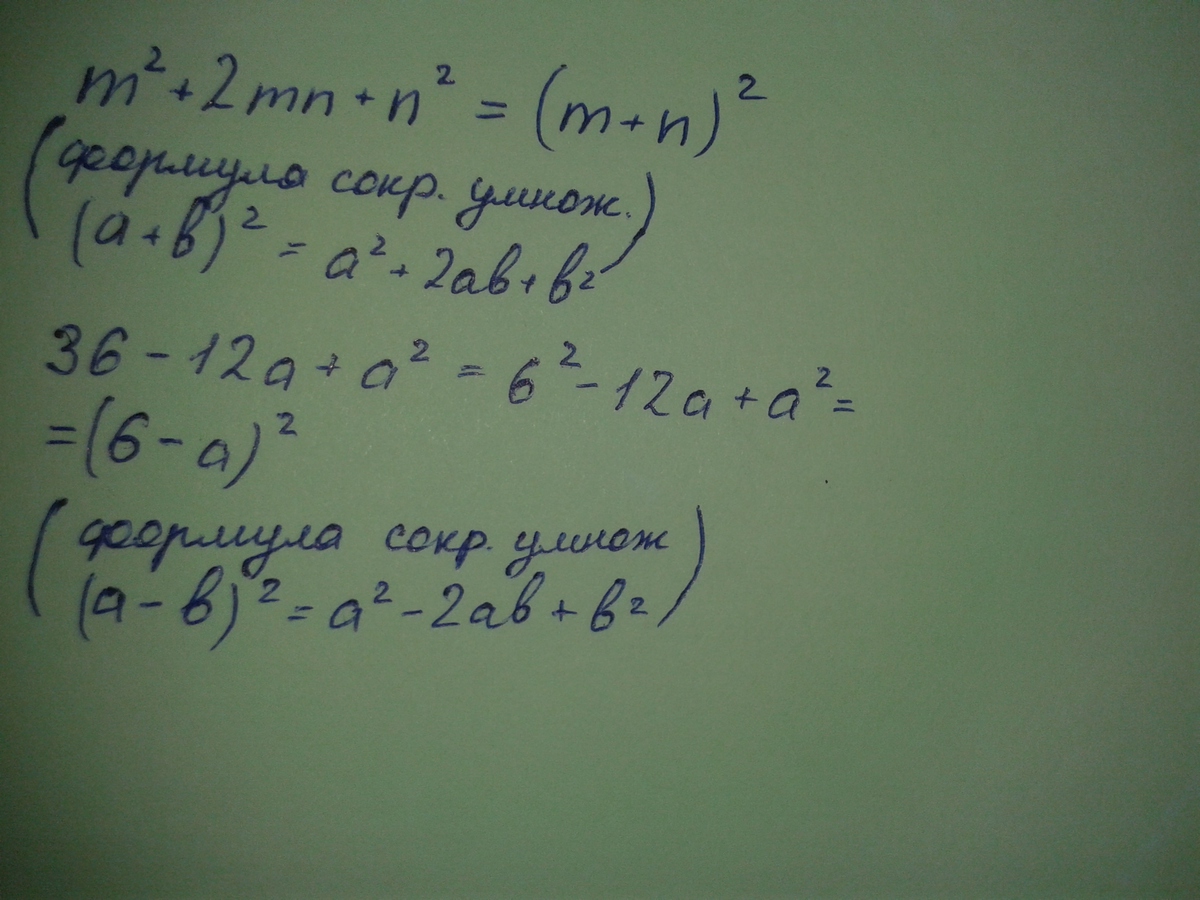 m² + 2mn + n² = (m + n)²
(формула сокр. умнож.
(a + b)² = a² + 2ab + b²)
36 - 12a + a² = 6² - 12a + a² =
= (6 - a)²
(формула сокр. умнож
(a - b)² = a² - 2ab + b²)